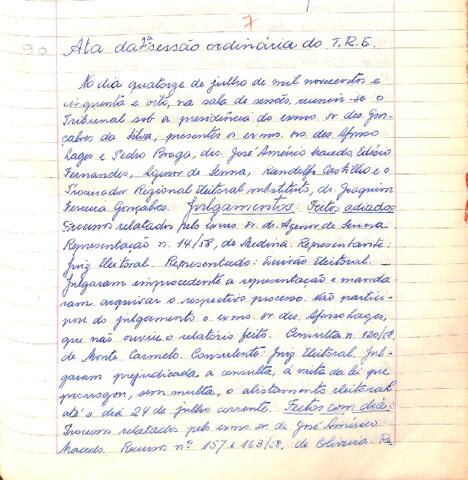 7
90 Ata da 7ª sessão ordinária do T.R.E.
No dia quatorze de julho de mil novecentos e
cinquenta e oito, na sala de sessão, reuniu-se o
Tribunal sob a presidência do exmo. sr. des. Gon-
çalves da Silva, presentes os exmos. srs. des. Afonso
Lages e Pedro Braga, drs. José Américo Macedo, Edésio
Fernandes, Agenor de Senna, Randolfo Castilho e o
Procurador Regional Eleitoral substituto, dr. Joaquim
Ferreira Gonçalves. Julgamentos: Feitos adiados:
Processo relatado pelo exmo. sr. dr. Agenor de Senna
Representação n. 14/58, de Medina. Representante:
Juiz Eleitoral. Representado: Escrivão Eleitoral. —
Julgaram improcedente a representação e manda-
ram arquivar o respectivo processo. Não partici-
pou do julgamento o exmo. sr. des. Afonso Lages,
que não ouviu o relatório feito. Consulta n. 120/58,
de Monte Carmelo. Consulente: Juiz Eleitoral. Jul-
garam prejudicada a consulta, à vista da lei que
prorrogou, sem multa, o alistamento eleitoral
até o dia 24 de julho corrente. Feitos com dia:
Processos relatados pelo exmo. sr. dr. José Américo
Macedo. Recursos nºs 157 e 163/58, de Oliveira. Re